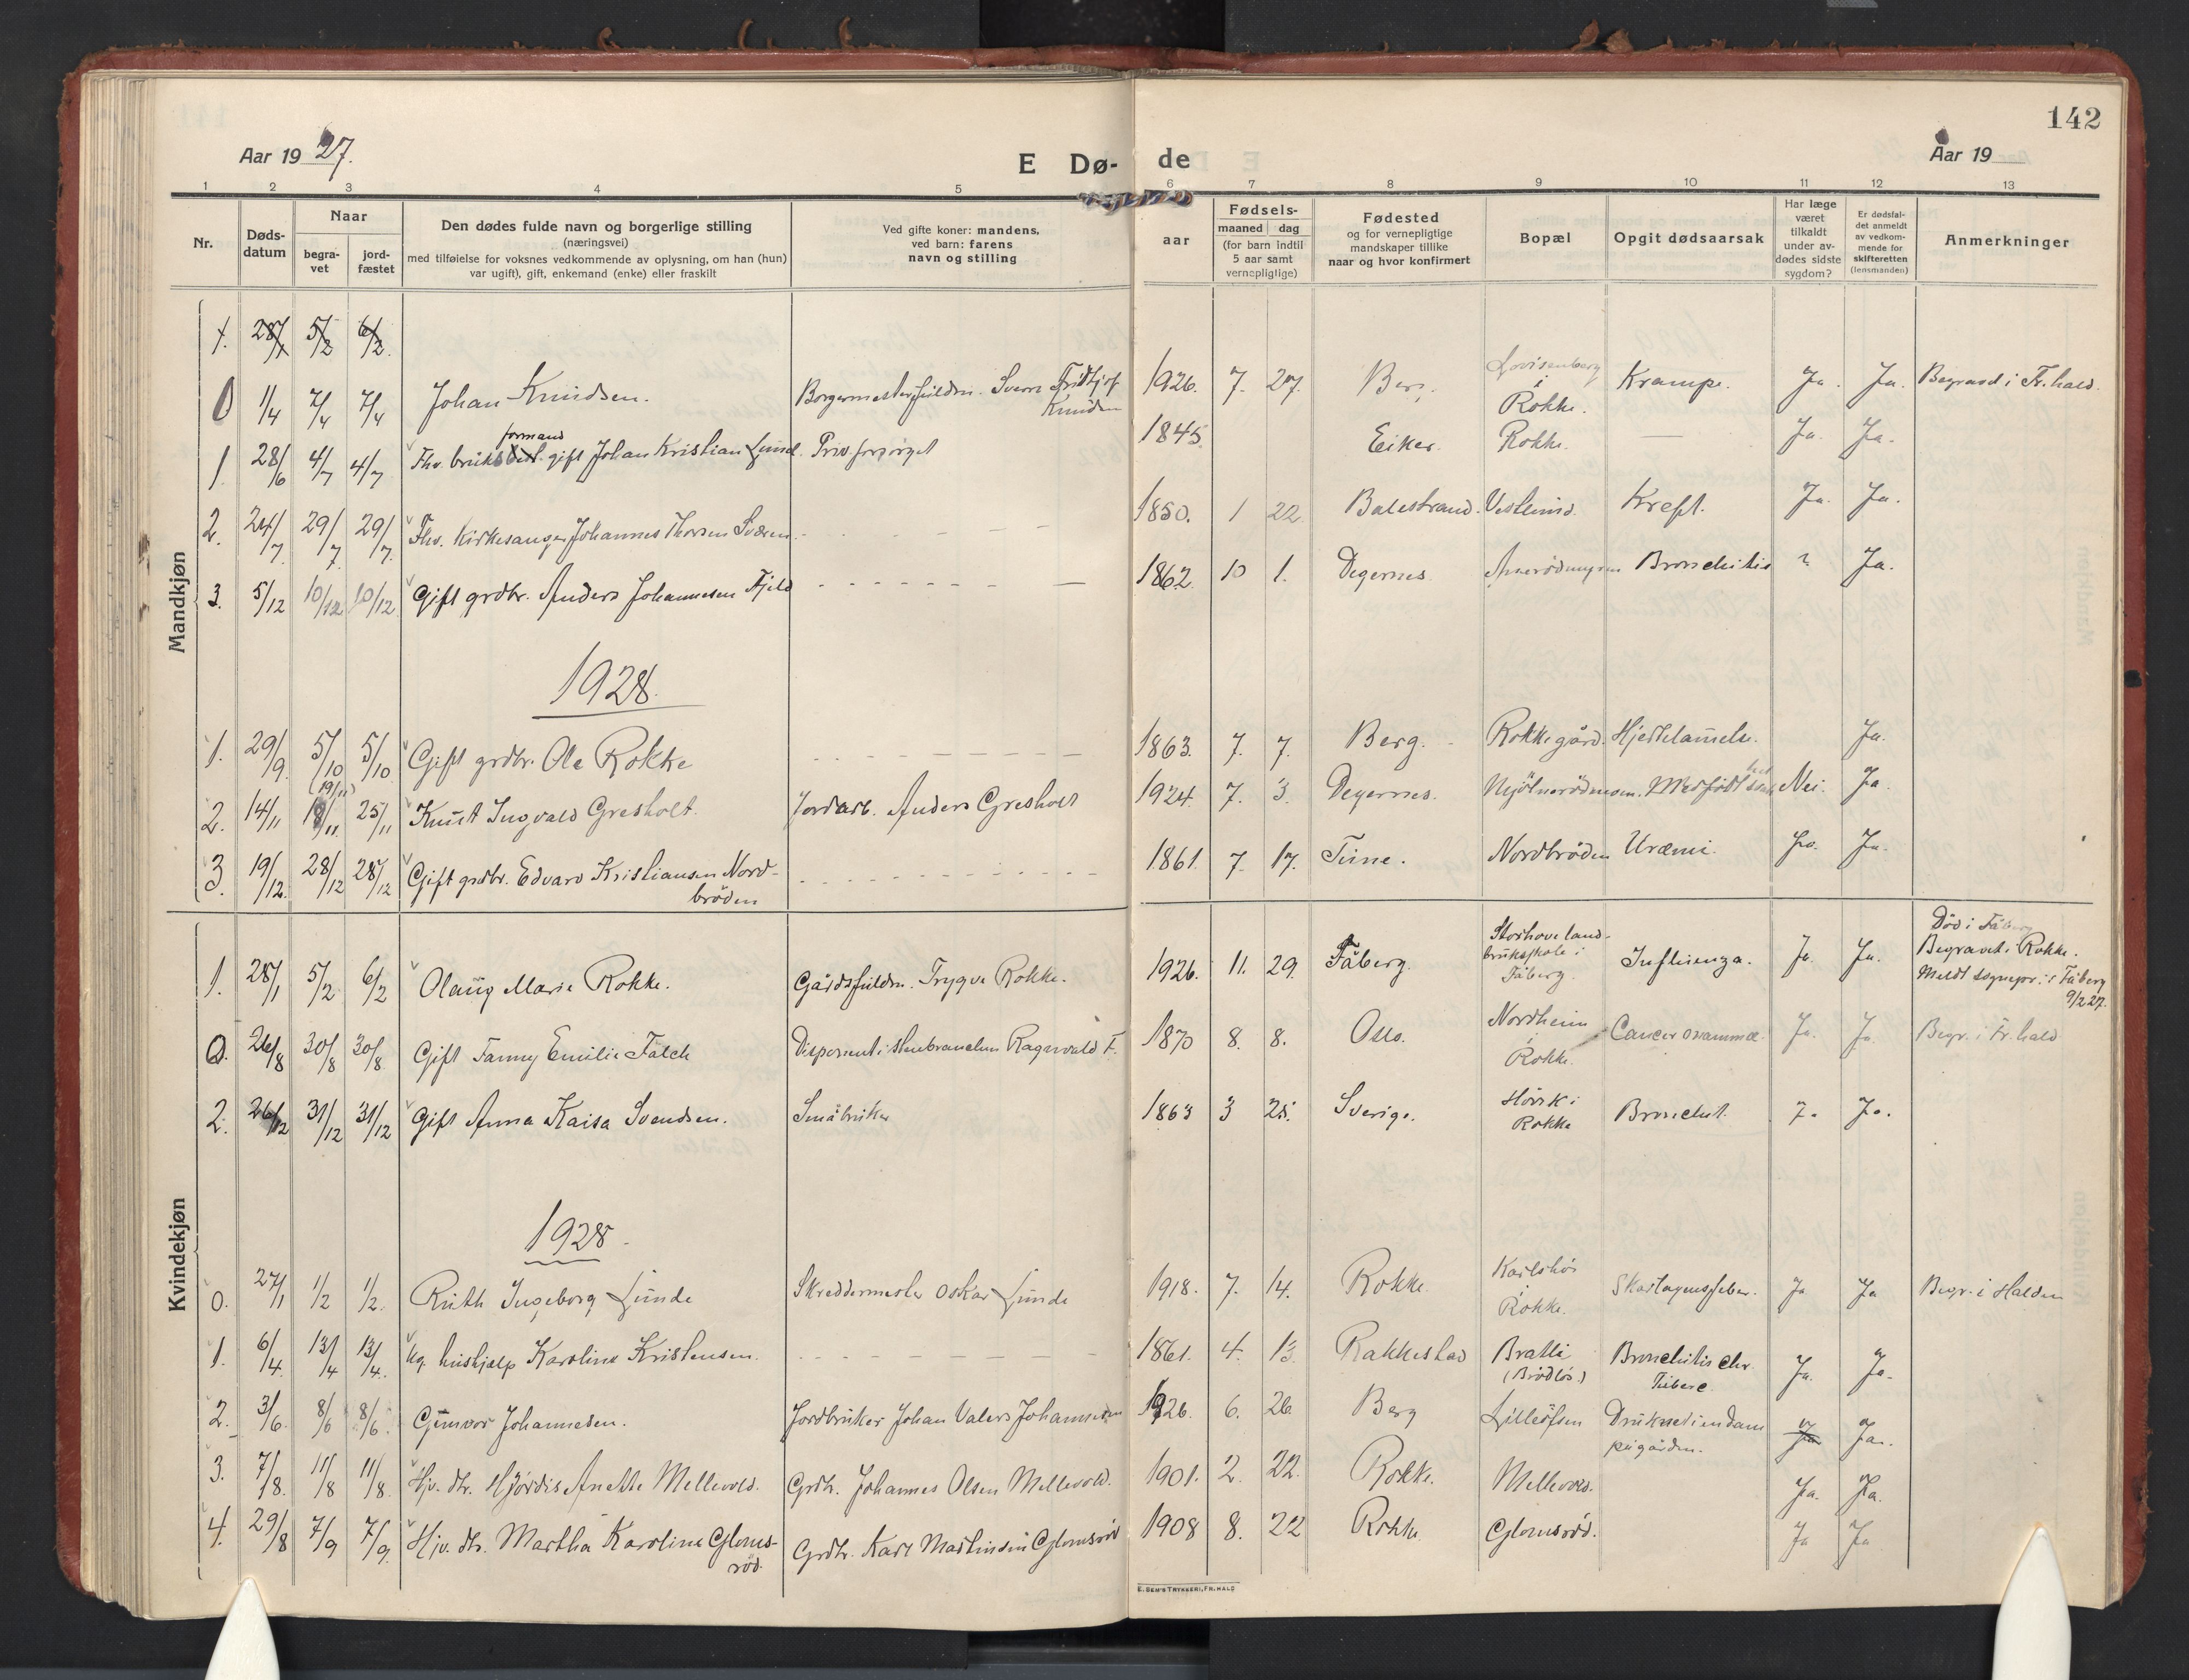 142
Aar 1927.
E Dø-
de
Aar 19
1 2 3 4 5 6 7 8 9 10 11 12 13
Nr.
Døds-
datum
Naar
begra-
vet
jord-
fæstet
Den dødes fulde navn og borgerlige stilling
(næringsvei)
med tilføielse for voksnes vedkommende av oplysning, om han (hun)
var ugift), gift, enkemand (enke) eller fraskilt
Ved gifte koner: mandens,
ved barn: farens
navn og stilling
aar
Fødsels-
maaned dag
(for barn indtil
5 aar samt
vernepligtige)
Fødested
og for vernepligtige
mandskaper tillike
naar og hvor konfirmert
Bopæl
Opgit dødsaarsak
Har læge
været
tilkaldt
under av-
dødes sidste
sygdom?
Er dødsfal-
det anmeldt
av vedkom-
mende for
skifteretten
(lensmanden)
Anmerkninger
Mandkjøn
1. 28/1 5/2 6/2
0 1/4 7/4 7/4 Johan Knudsen. Borgermesterfuldm. Sverre Fridtjof Knudsen 1926. 7. 27. Berg. Lovisenberg i Rokke. Krampe. Ja. Ja. Begravd i Fr.hald.
1 28/6 4/7 4/7 Fhv. bruksformand gift Johan Kristian Lund. Priv. forsørget 1845. Eiker. Rokke. — Ja. Ja.
2. 24/7 29/7 29/7 Fhv. Kirkesanger Johannes Thorsen Sværen. 1850. 1 22. Balestrand. Vestlund. Kreft. Ja. Ja.
3. 5/12 10/12 10/12 Gift grdbr. Anders Johannesen Fjeld 1862 10 1. Degernes. Bronchitis ? Ja.
1928.
1. 29/9. 5/10 5/10 Gift grdbr. Ole Rokke 1863. 7. 7. Berg. Rokke gård. Hjertelammelse. Ja.
(19/11)
2. 14/11 18/11 25/11 Knut Ingvald Gresholt. Jordarb. Anders Gresholt 1924. 7. 3. Degernes. Medfødt Nei. Ja.
3 19/12. 28/12 28/12 Gift grdbr. Edvard Kristiansen Nord-
brøden 1861. 7. 17. Tune. Nordbrøden Uræmi. Ja. Ja.
Kvindekjøn
1. 28/1 5/2 6/2 Olaug Marie Rokke. Gårdsfuldm. Trygve Rokke. 1926. 11. 29. Fåberg. Storhove land-
bruksskole i
Fåberg. Influenza. Ja. Ja. Død i Fåberg
Begravet i Rokke.
Meldt sognepr. i Fåberg
9/2 27.
0. 26/8 30/8 30/8 Gift Fanny Emilie Falch Disponent i stenbranchen Ragnvald F. 1870 8. 8. Oslo. Nordheim
i
Rokke. Cancer mammæ. Ja. Ja. Begr. i Fr.hald
2. 26/12 31/12 31/12 Gift Anna Kaisa Svendsen. Småbruker 1863 3 25. Sverige. Høvik i
Rokke Bronchit. J. Ja.
1928.
0. 27/1 1/2 1/2. Ruth Ingeborg Lunde Skreddermester Oskar Lunde 1918. 7. 14. Rokke. Karlshös
i
Rokke. Skarlagensfeber. Ja Ja Begr. i Halden
1. 6/4. 13/4 13/4. Ug. hushjælp Karoline Kristensen. 1861. 4. 13. Rakkestad Bratli
(Brødløs) Bronchitis chr.
Tuberc. Ja. Ja.
2. 3/6. 8/6 8/6. Gunvor Johannesen. Jordbruker Johan Valers Johannesen 1926. 6. 26 Berg Druknet i en dam
på gården. Ja Ja.
3. 7/8. 11/8 11/8. Hjv. dtr. Hjørdis Anette Mellevold. Grdbr. Johannes Olsen Mellevold. 1901. 2. 22. Rokke. Mellevold. Ja. Ja.
4. 29/8 7/9 7/9. Hjv. dtr. Martha Karoline Gloms-
rød. Grdbr. Karl Martinsen Glomsrød 1908 8. 22 Rokke Glomsrød. Ja Ja
E. SEM'S TRYKKERI, FR.HALD